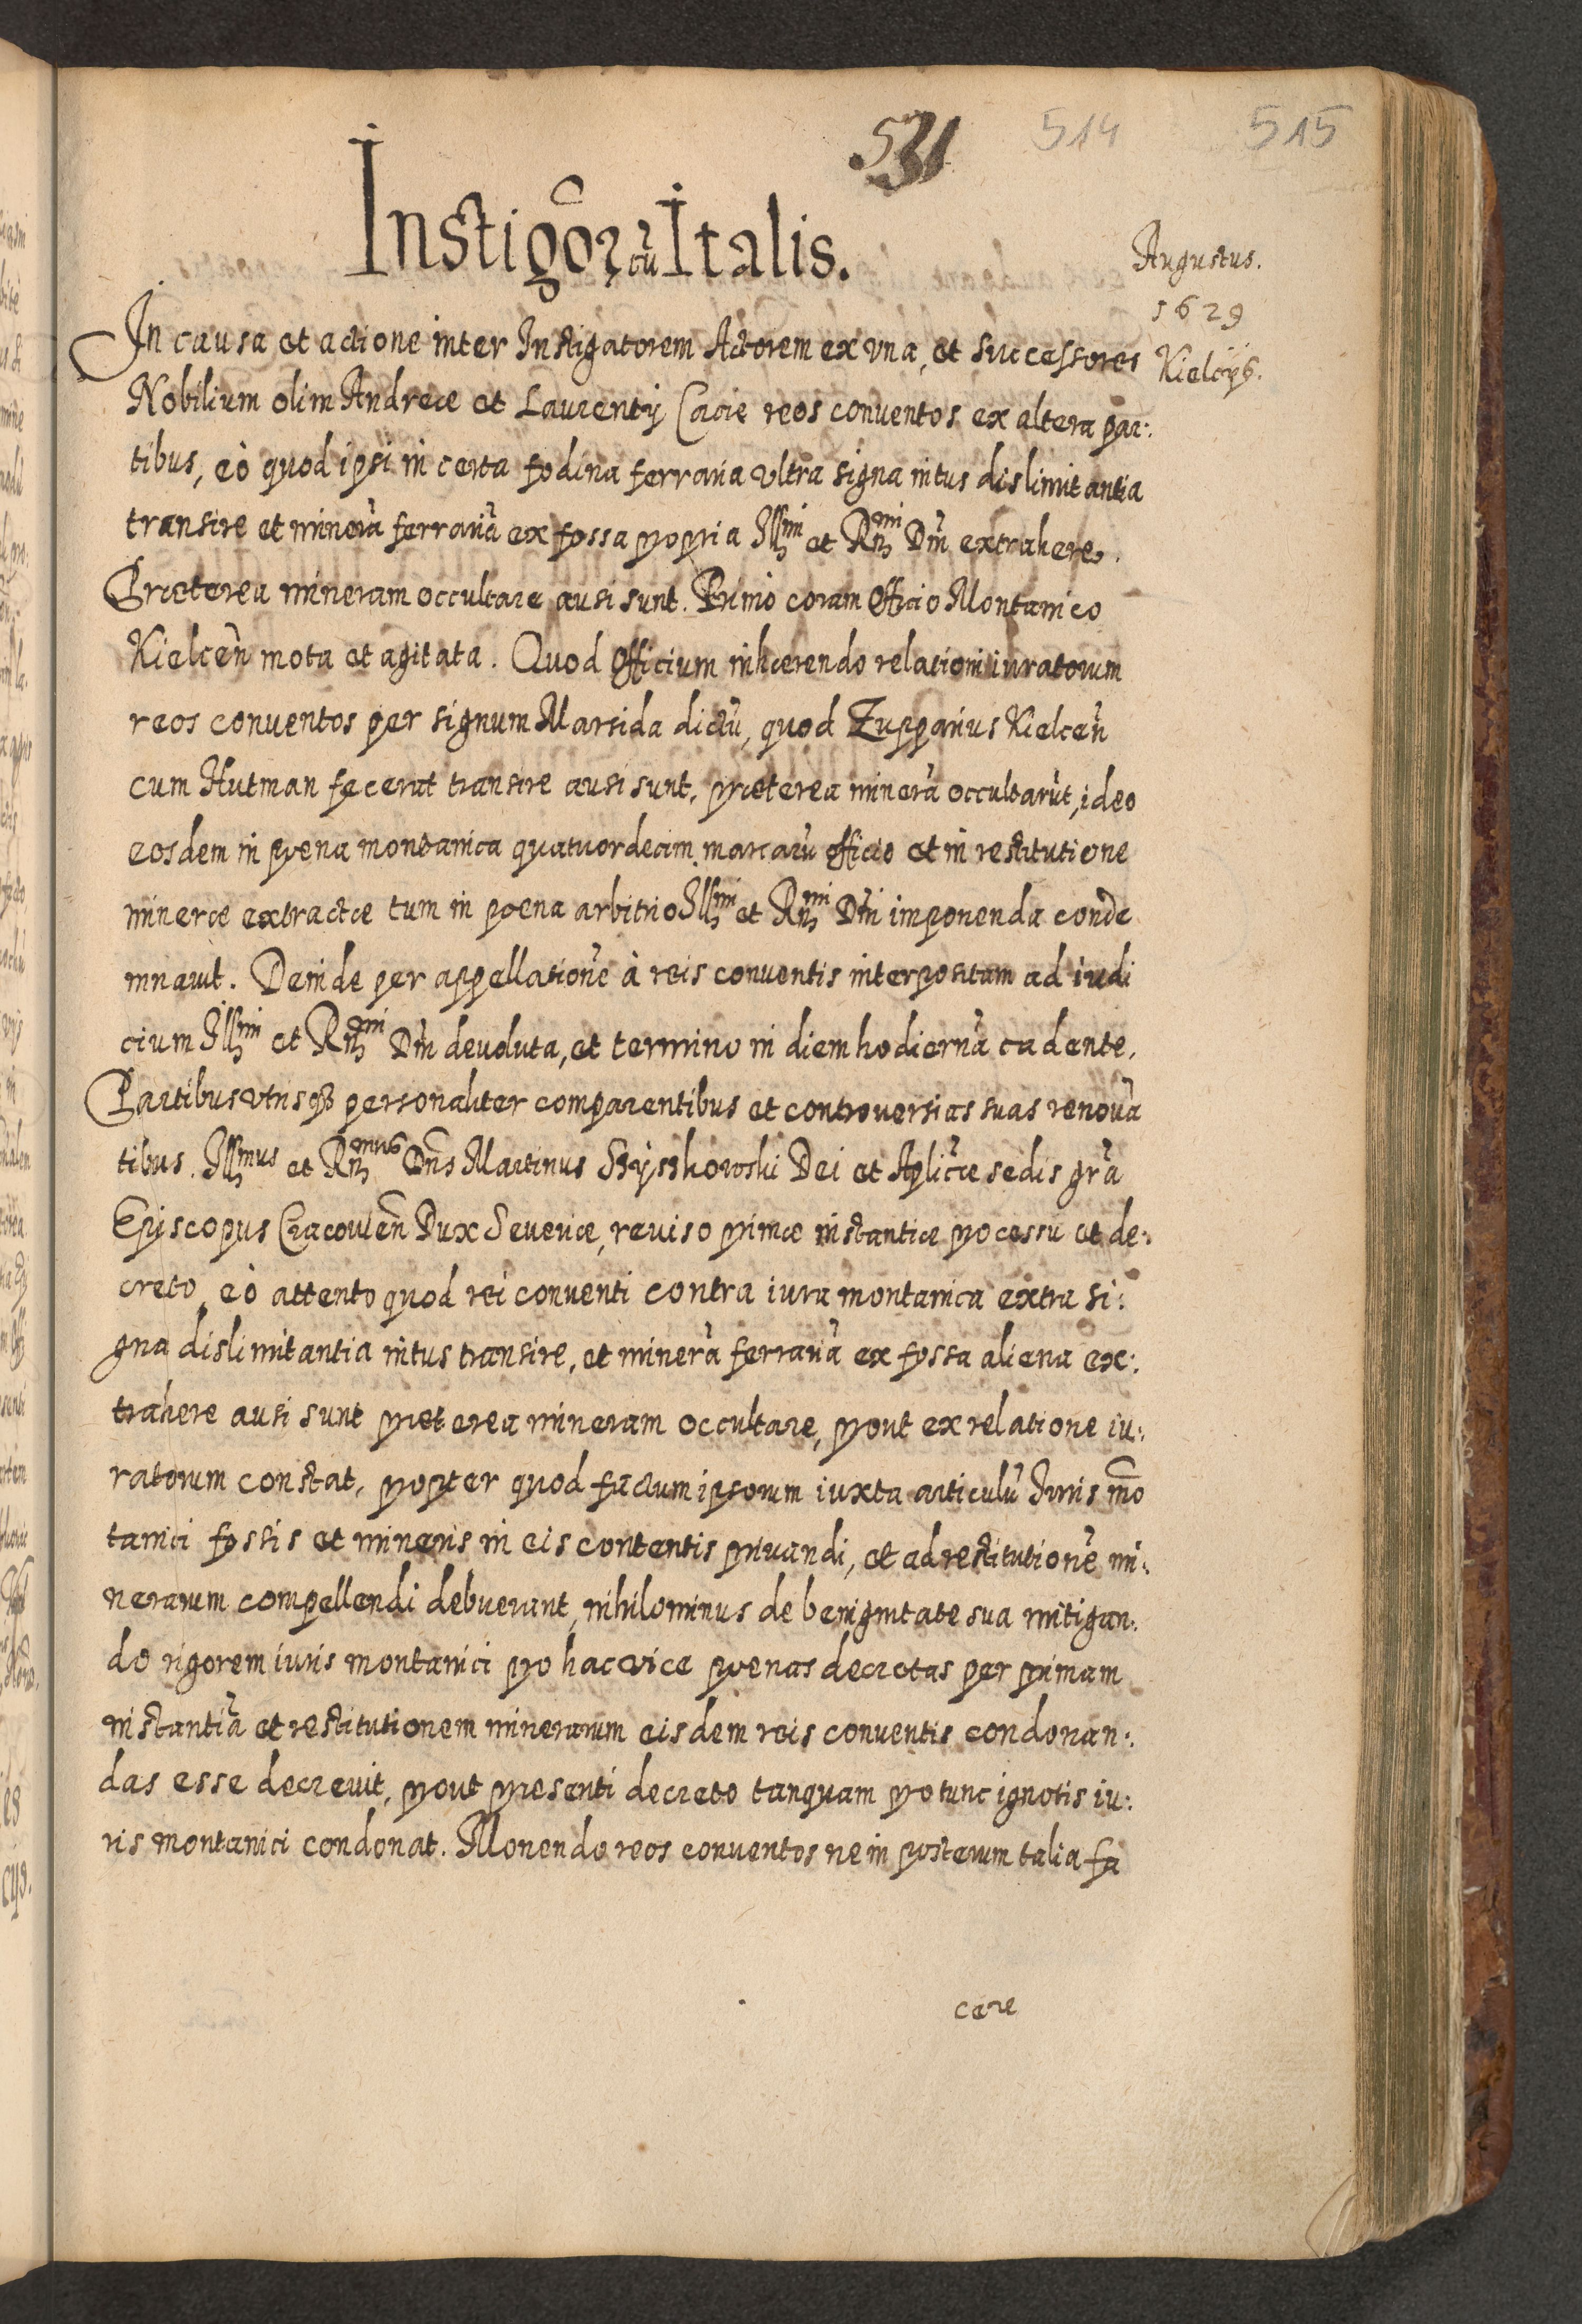 531 514 515
Instigōr cū Italis.
Augustus.
1629
Kielcijs.
In causa et actione inter Instigatorem Actorem ex vna, et successores
Nobilium olim Andreæ et Laurentij Cacie reos conuentos ex altera par:
tibus, eò quod ipsi in certa fodina ferraria vltra signa intus dislimitantia
transire et minerā ferrariā ex fossa propria Illmi et Rmi Dni extrahere.
Præterea mineram occultare ausi sunt. Primò coram Officio Montanico
Kielcen mota et agitata. Quod Officium inhærendo relationi iuratorum
reos conuentos per signum Marsida dictū, quod Zupparius Kielcen
cum Hutman fecerat transire ausi sunt, præterea minerā occultarūt, ideo
eosdem in pœna montanica quatuordecim marcarū officio et in restitutione
mineræ extractæ tum in pœna arbitrio Illmi et Rmi Dni imponenda conde
mnauit. Deinde per appellationē à reis conuentis interpositam ad iudi
cium Illmi et Rmi Dni deuoluta, et termino in diem hodiernā cadente.
Partibus vtrisq; personaliter comparentibus et controuersias suas renouā
tibus. Illmus et Rmus Dns Martinus Szyszkowski Dei et Aplicæ sedis grā
Episcopus Cracouien Dux Seueriæ, reuiso primæ instantiæ processu et de:
creto, eò attento quod rei conuenti contra iura montanica extra si:
gna dislimitantia intus transire, et minerā ferrariā ex fossa aliena ex:
trahere ausi sunt præterea mineram occultare, prout ex relatione iu:
ratorum constat, propter quod factum ipsorum iuxta articulū Iuris mō
tanici fossis et mineris in eis contentis priuandi, et ad restitutionē mi:
nerarum compellendi debuerant, nihilominus de benignitate sua mitigan:
do rigorem iuris montanici pro hac vice pœnas decretas per primam
instantiā et restitutionem minerarum eisdem reis conuentis condonan:
das esse decreuit, prout præsenti decreto tanquam pro tunc ignotis iu:
ris montanici condonat. Monendo reos conuentos ne in posterum talia fa
cere